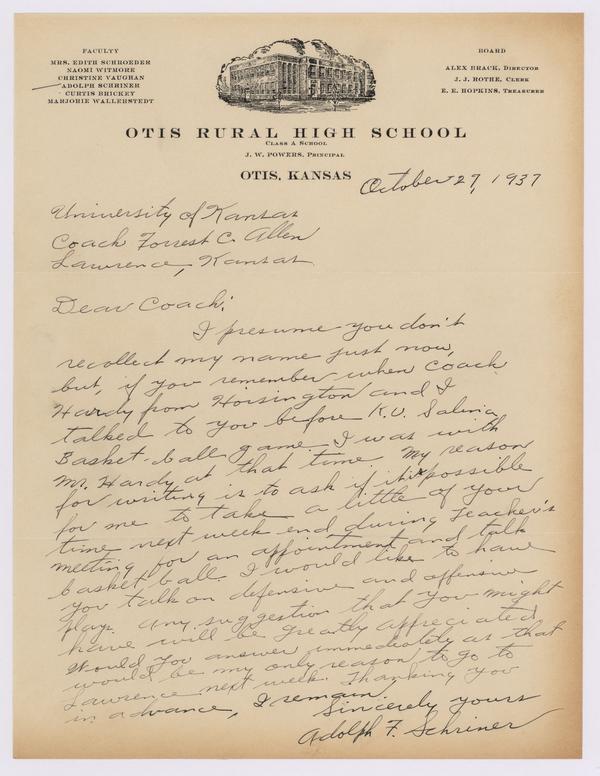 FACULTY
MRS. EDITH SCHROEDER
NAOMI WITMORE
CHRISTINE VAUGHAN
ADOLPH SCHRINER
CURTIS BRICKEY
MARJORIE WALLERSTEDT
BOARD
ALEX BRACK, DIRECTOR
J. J. ROTHE, CLERK
E. E. HOPKINS, TREASURER
OTIS RURAL HIGH SCHOOL
CLASS A SCHOOL
J. W. POWERS, PRINCIPAL
OTIS, KANSAS
October 27, 1937
University of Kansas
Coach Forrest C. Allen
Lawrence, Kansas.
Dear Coach:
I presume you don't
recollect my name just now,
but, if you remember when Coach
Hardy from Hoisington and I
talked to you before K.U. Salina
Basket-ball game. I was with
Mr. Hardy at that time. My reason
for writing is to ask if it is possible
for me to take a little of your
time next week end during Teacher's
meeting for an appointment and talk
basket ball. I would like to have
you talk on defensive and offensive
play. Any suggestion that you might
have will be greatly appreciated
Would you answer immediately as that
would be my only reason to go to
Lawrence next week. Thanking you
in advance, I remain.
Sincerely yours
Adolph F. Schriner